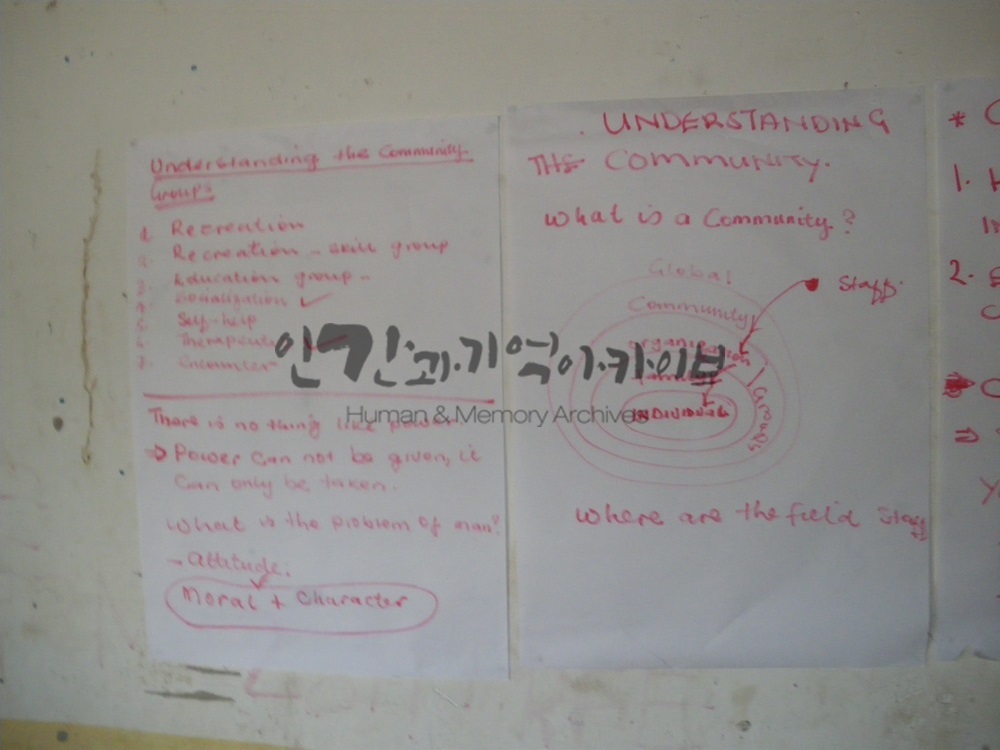 Understanding the Community
Groups
1. Recreation
2. Recreation - skill group
3. Education group -
4. Socialization ✓
5. Self-help
6. Therapeutic
7. Encounter
There is no thing like power
⇒ Power can not be given, it
can only be taken.
What is the problem of man?
- Attitude.
Moral + Character
UNDERSTANDING
THE COMMUNITY.
What is a Community?
Global
Community
Staff.
organization
Groups
INDIVIDUAL
Where are the field staff
*
1.
2.
⇒
인간과.기억아카이브
Human & Memory Archives